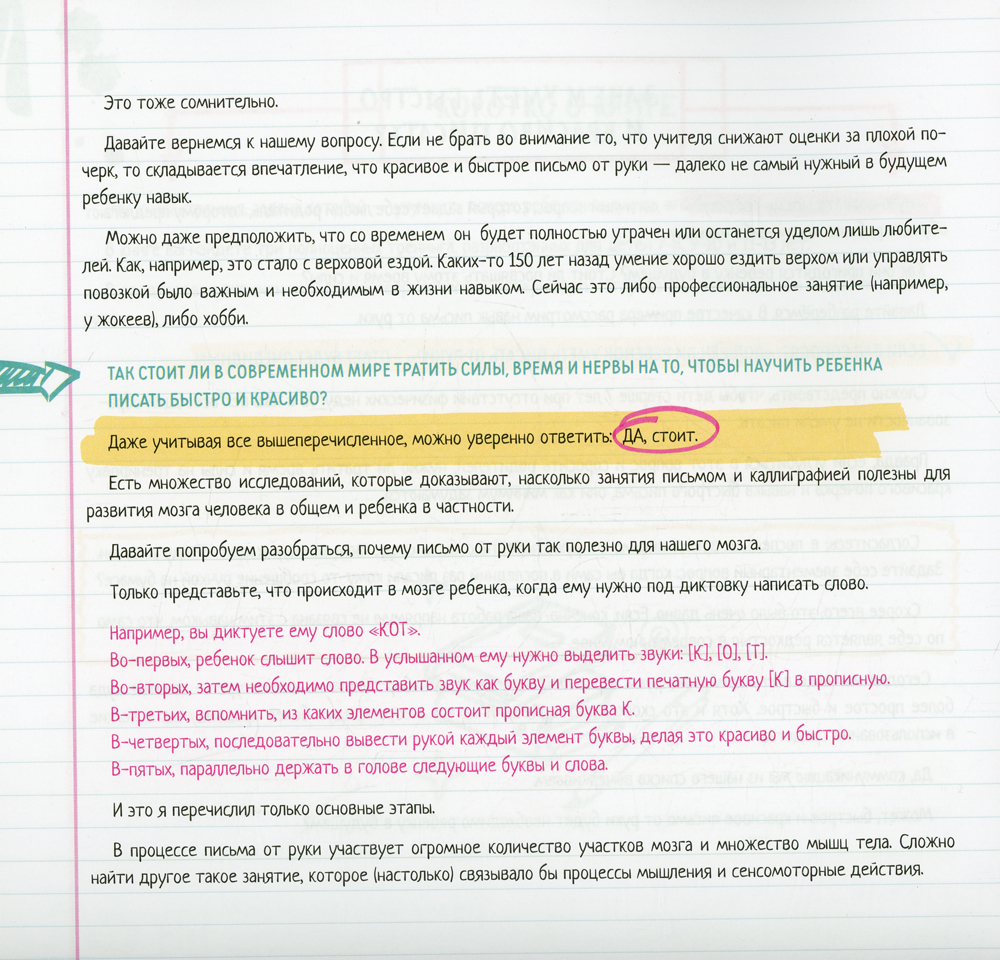 Это тоже сомнительно.
Давайте вернемся к нашему вопросу. Если не брать во внимание то, что учителя снижают оценки за плохой по-
черк, то складывается впечатление, что красивое и быстрое письмо от руки — далеко не самый нужный в будущем
ребенку навык.
Можно даже предположить, что со временем он будет полностью утрачен или останется уделом лишь любите-
лей. Как, например, это стало с верховой ездой. Каких-то 150 лет назад умение хорошо ездить верхом или управлять
повозкой было важным и необходимым в жизни навыком. Сейчас это либо профессиональное занятие (например,
у жокеев), либо хобби.
ТАК СТОИТ ЛИ В СОВРЕМЕННОМ МИРЕ ТРАТИТЬ СИЛЫ, ВРЕМЯ И НЕРВЫ НА ТО, ЧТОБЫ НАУЧИТЬ РЕБЕНКА
ПИСАТЬ БЫСТРО И КРАСИВО?
Даже учитывая все вышеперечисленное, можно уверенно ответить: ДА, стоит.
Есть множество исследований, которые доказывают, насколько занятия письмом и каллиграфией полезны для
развития мозга человека в общем и ребенка в частности.
Давайте попробуем разобраться, почему письмо от руки так полезно для нашего мозга.
Только представьте, что происходит в мозге ребенка, когда ему нужно под диктовку написать слово.
Например, вы диктуете ему слово «КОТ».
Во-первых, ребенок слышит слово. В услышанном ему нужно выделить звуки: [К], [О], [Т].
Во-вторых, затем необходимо представить звук как букву и перевести печатную букву [К] в прописную.
В-третьих, вспомнить, из каких элементов состоит прописная буква К.
В-четвертых, последовательно вывести рукой каждый элемент буквы, делая это красиво и быстро.
В-пятых, параллельно держать в голове следующие буквы и слова.
И это я перечислил только основные этапы.
В процессе письма от руки участвует огромное количество участков мозга и множество мышц тела. Сложно
найти другое такое занятие, которое (настолько) связывало бы процессы мышления и сенсомоторные действия.